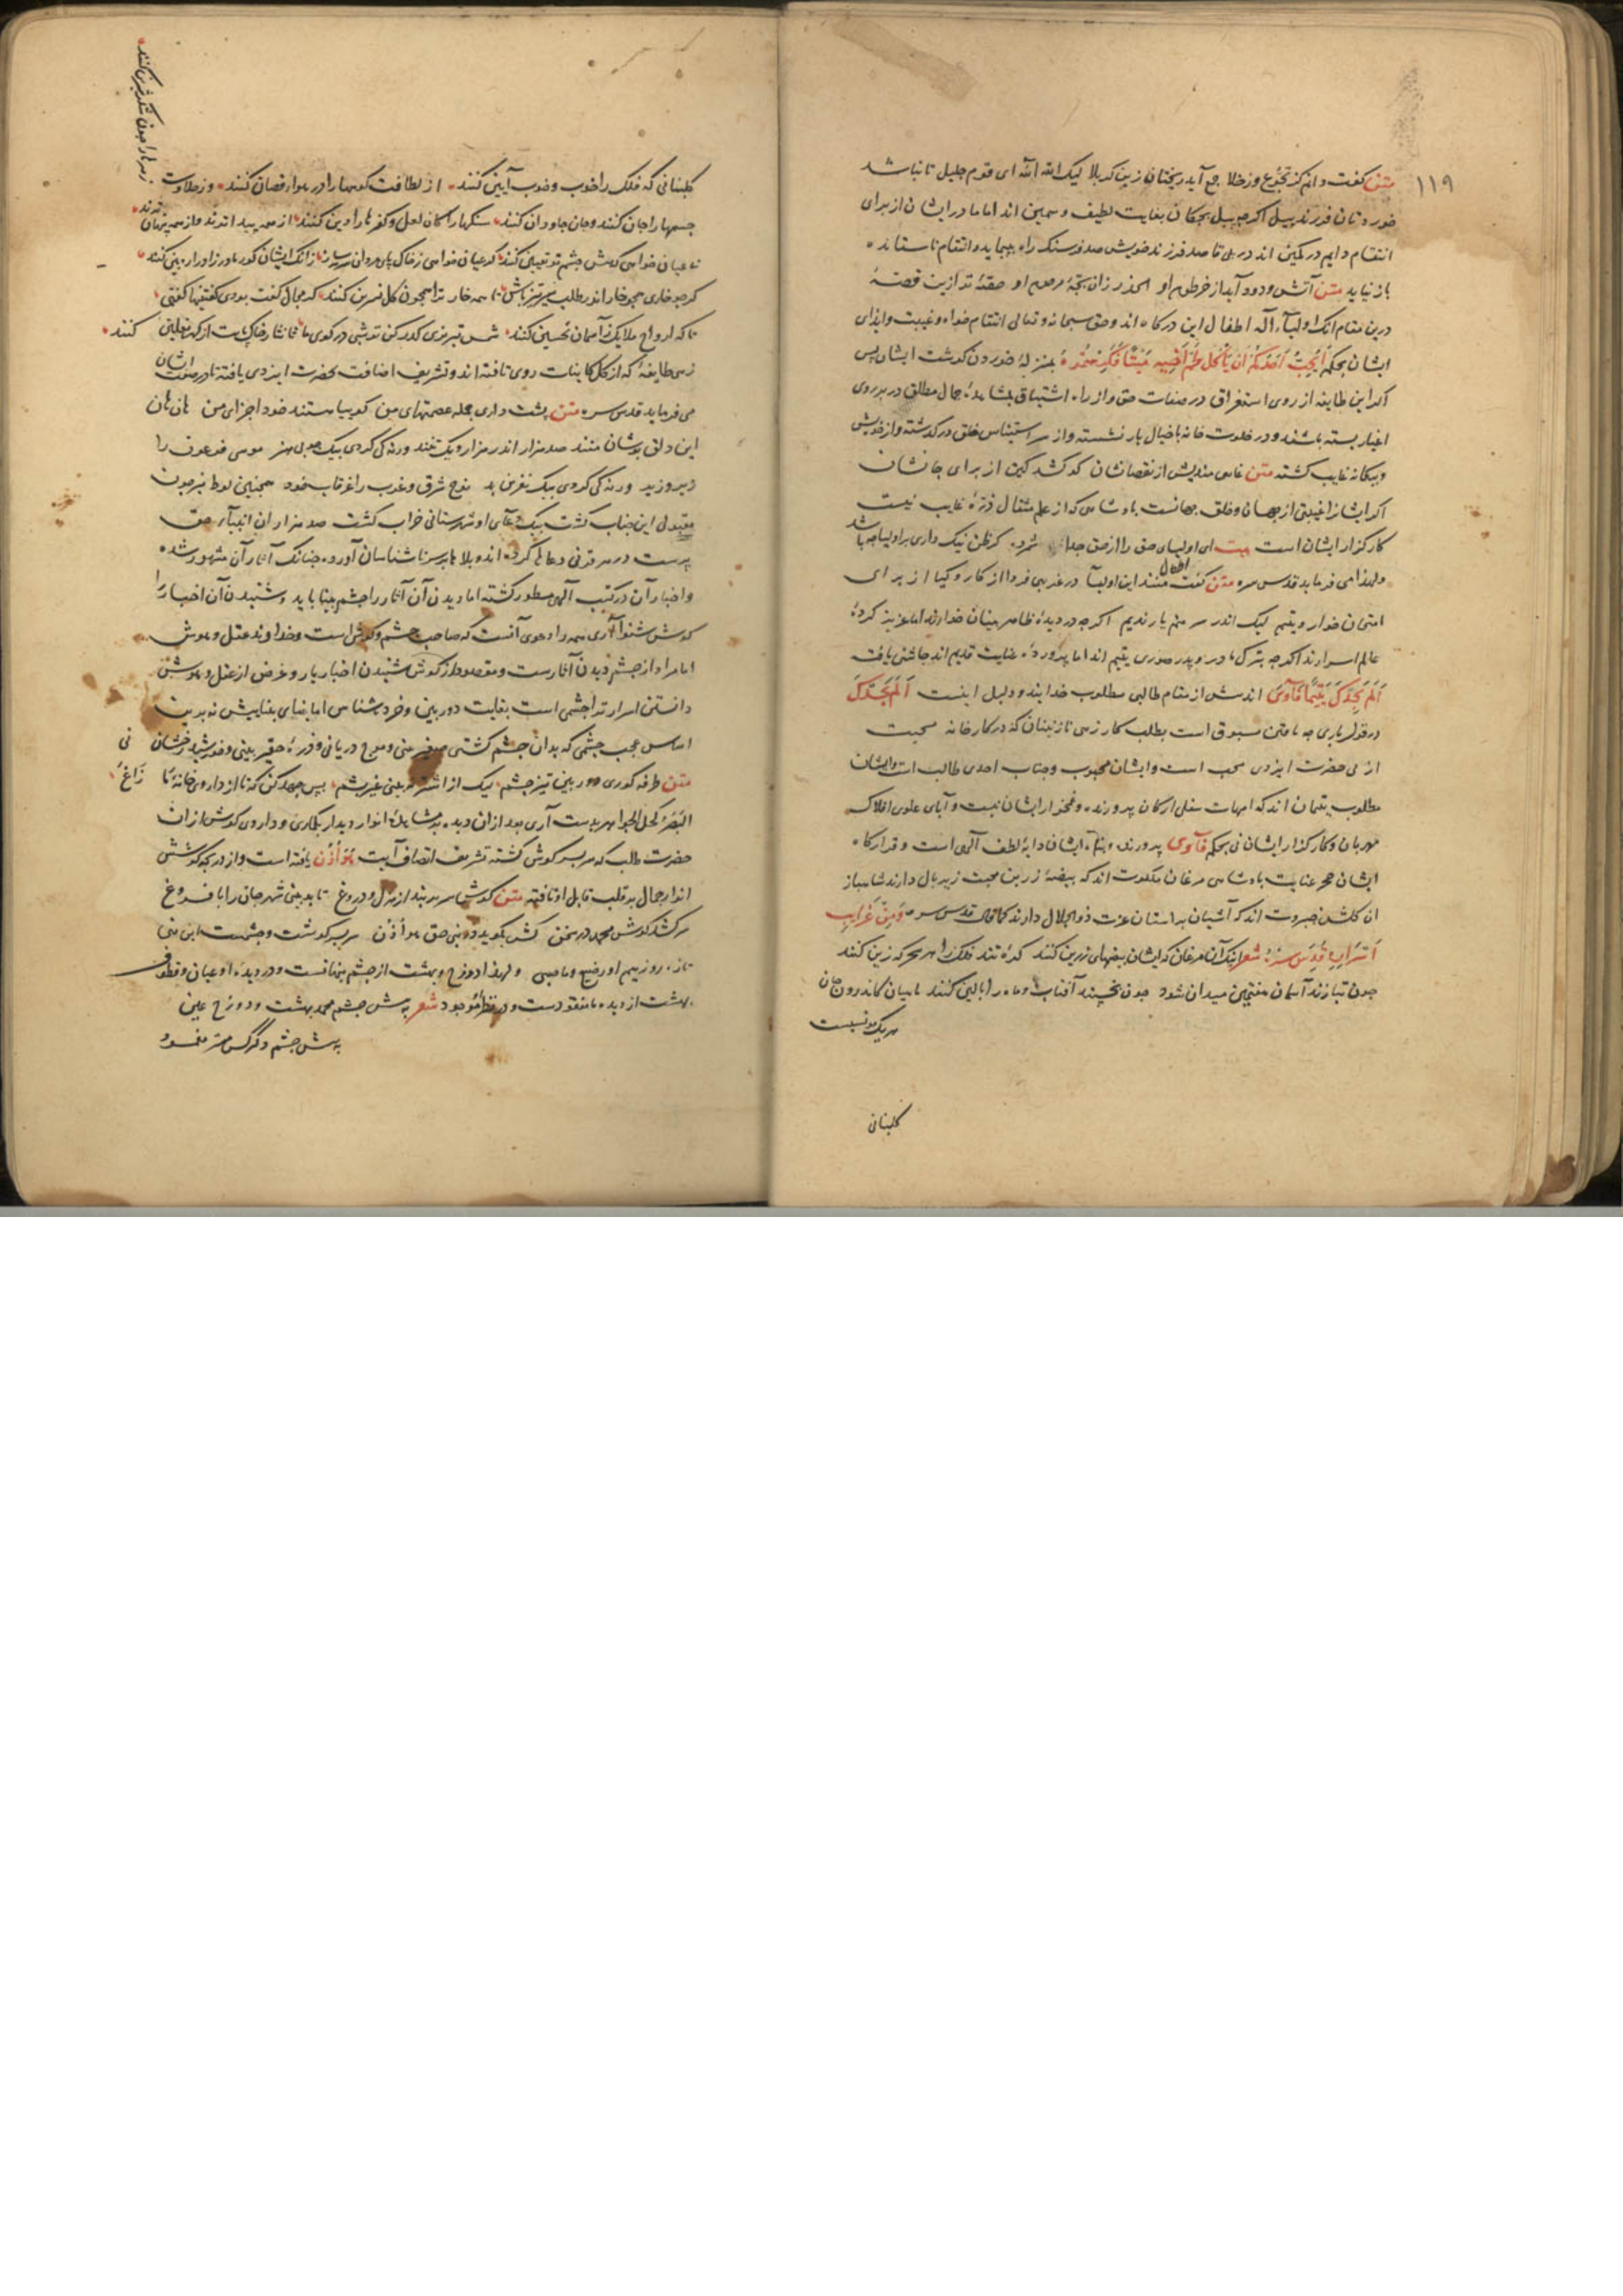 ۱۱۹
متن گفت دانم کز تجوع وز خلا جمع آید رنجتان زین کربلا لیک الله الله ای قوم جلیل تا نباشد
خوردتان فرزند پیل اگرچه پیل بچگان بغایت لطیف و سمین اند اما مادر ایشان از برای
انتقام دایم در کمین اند در پی قاصد فرزند خویش صد فرسنگ راه بپیماید و انتقام ناستانده
باز نیاید متن آتش و دود آید از خرطوم او الحذر زان بچهٔ مرحوم او حقهٔ تد ازین قصهٔ
درین مقام آنک اولیاء الله اطفال این درگاه اند و حق سبحانه و تعالی انتقام خواه و غیبت و ایذای
ایشان بحکم أَيُحِبُّ أَحَدُكُمْ أَن يَأْكُلَ لَحْمَ أَخِيهِ مَيْتًا فَكَرِهْتُمُوهُ بمنزلهٔ خوردن گوشت ایشان پس
اگر این طایفه از روی استغراق در صفات حق و از راه اشتیاق بمشاهدهٔ جمال مطلق در بر روی
اغیار بسته باشند و در خلوت خانه با خیال یار نشسته و از سر استیناس خلق درگذشته و از خویش
و بیگانه غایب گشته متن غایبی مندیش از نقصانشان کو کشد کین از برای جانشان
اگر ایشانرا غیبتی از جهان و خلق جهانست پادشاهی که از علم مثقال ذرهٔ غایب نیست
کارگزار ایشان است بیت ای اولیای حق را از حق جدا شمرده گر ظن نیک داری بر اولیا چه باشد
و لهذا می فرماید قدس سره متن گفت اطفال منند این اولیا در غریبی فرد از کار و کیا از برای
امتحان خوار و یتیم لیک اندر سر منم یار و ندیم اگرچه در دیدهٔ ظاهر بینان خوارند اما عزیز کردهٔ
عالم اسرارند اگرچه بترک مادر و پدر صوری یتیم اند اما پروردهٔ عنایت قدیم اند چاشنی یافت
أَلَمْ يَجِدْكَ يَتِيمًا فَآوَىٰ اندیش از مقام طالبی مطلوب خدایند و دلیل اینست أَلَمْ يَجِدْكَ
در قول باری چه یافتن مسبوق است بطلب کار زهی نازنینان که در کارخانه محبت
ازلی حضرت ایزدی محب است و ایشان محبوب و جناب احدی طالب است و ایشان
مطلوب یتیمان اند که امهات سفلی ارکان پرورنده و غمخوار ایشان نیست و آبای علوی افلاک
مهربان و کارگزار ایشان نی بحکم فَآوَىٰ پرورنده و پناه ایشان دایهٔ لطف الهی است و قرارگاه
ایشان حجر عنایت پادشاهی مرغان ملکوت اند که بیضهٔ زرین محبت زیر بال دارند شاهباز
ان گلشن جبروت اند که آشیان بر استان عزت ذوالجلال دارند کما قال قدس سره وَمِنْ غَرَايِبِ
أَسْرَارِهِ قُدِّسَ سِرُّهُ شعر اینک آن مرغان که ایشان بیضهای زرین کنند کرهٔ تند فلک را هر سحرگه زین کنند
چون بتازند آسمان هفتمین میدان شود چون بخسپند آفتاب و ماه را بالین کنند ماهیان کاندرون جان
هر یک یونسیست
گلبنانی
گلبنانی که فلک را خوب و خوب آیین کنند از لطافت کوهها را در هوا رقصان کنند وز حلاوت
زهرها را چون شکر شیرین کنند
جسمها را جان کنند و جان جاودان کنند سنگها را کان لعل و کفرها را دین کنند از همه پیدا ترند و از همه پنهان ترند
تا عیان خواهی که پیش چشم تو تعیین کنند گر عیان خواهی ز خاک پای مردان سرمه ساز زانک ایشان کور مادرزاد را ره بین کنند
گرچه خاری همچو خار اندر طلب سر تیز باش تا همه خار ترا همچون گل نسرین کنند گر مجال گفت بودی گفتنیها گفتمی
تا که ارواح ملایک ز آسمان تحسین کنند شمس تبریزی گذر کن
زهی طایفهٔ که از کل کاینات روی تافته اند و تشریف اضافت حضرت ایزدی یافته اند در صفت ایشان
می فرماید قدس سره متن پشت داری جمله عصمتهای من گوییا هستند خود اجزای من هان هان
این دلق پوشان منند صد هزار اندر هزار و یک تنند ورنه کی کردی بیک چوبی هنر موسی فرعون را
زیر و زبر ورنه کی کردی بیک نفرین بد نوح شرق و غرب را غرقاب خود همچنین لوط نیز چون
مقبول این جناب گشت بیک دعای او شهرستانی خراب گشت صد هزاران انبیاء حق
پرست در هر قرنی دعاها کرده اند و بلاها بر سر ناشناسان آورده چنانک آثار آن مشهور شده
و اخبار آن در کتب الهی مسطور گشته اما دیدن آن آثار را چشم بینا باید و شنیدن آن اخبار را
گوش شنوا آری همه را دعوی آنست که صاحب چشم و گوش است و خداوند عقل و هوش
اما مراد از چشم دیدن آثارست و مقصود از گوش شنیدن اخبار یار و غرض از عقل و هوش
دانستن اسرار ترا چشمی است بغایت دوربین و خرده شناس اما بنای بینایش نه برین
اساس عجب چشمی که بدان چشم کشتی صغیر بینی و موج دریا نی و ذرهٔ حقیر بینی و خورشید رخشان نی
متن طرفه کوری دوربین تیز چشم لیک از اشتر نبینی غیر پشم پس جهد کن که تا از داروخانهٔ مَا زَاغَ
البَصَر کحل الجواهر بدست آری بعد ازان دیده بمشاهدهٔ انوار دیدار بگماری و داروی گوش از ان
حضرت طلب که سر بسر گوش گشته تشریف اتصاف آیت هُوَ أُذُنٌ یافته است و از دریچه گوشش
انوار جمال بر قلب قابل او تافته متن گوش سر بربند از هزل و دروغ تا ببینی شهر جان را با فروغ
سر کشد گوش محمد در سخن کش بگوید در نبی حق هو أذن سر بسر گوشست و چشمست این نبی
تازه روزیم او رضیع و ما صبی و لهذا دوزخ و بهشت از چشم پنهانست و در دیدهٔ او عیان و قطوف
بهشت از دیده ما مفقودست و در نظر او موجود شعر پیش چشم محمد بهشت و دوزخ عین
به پیش چشم دگر کس